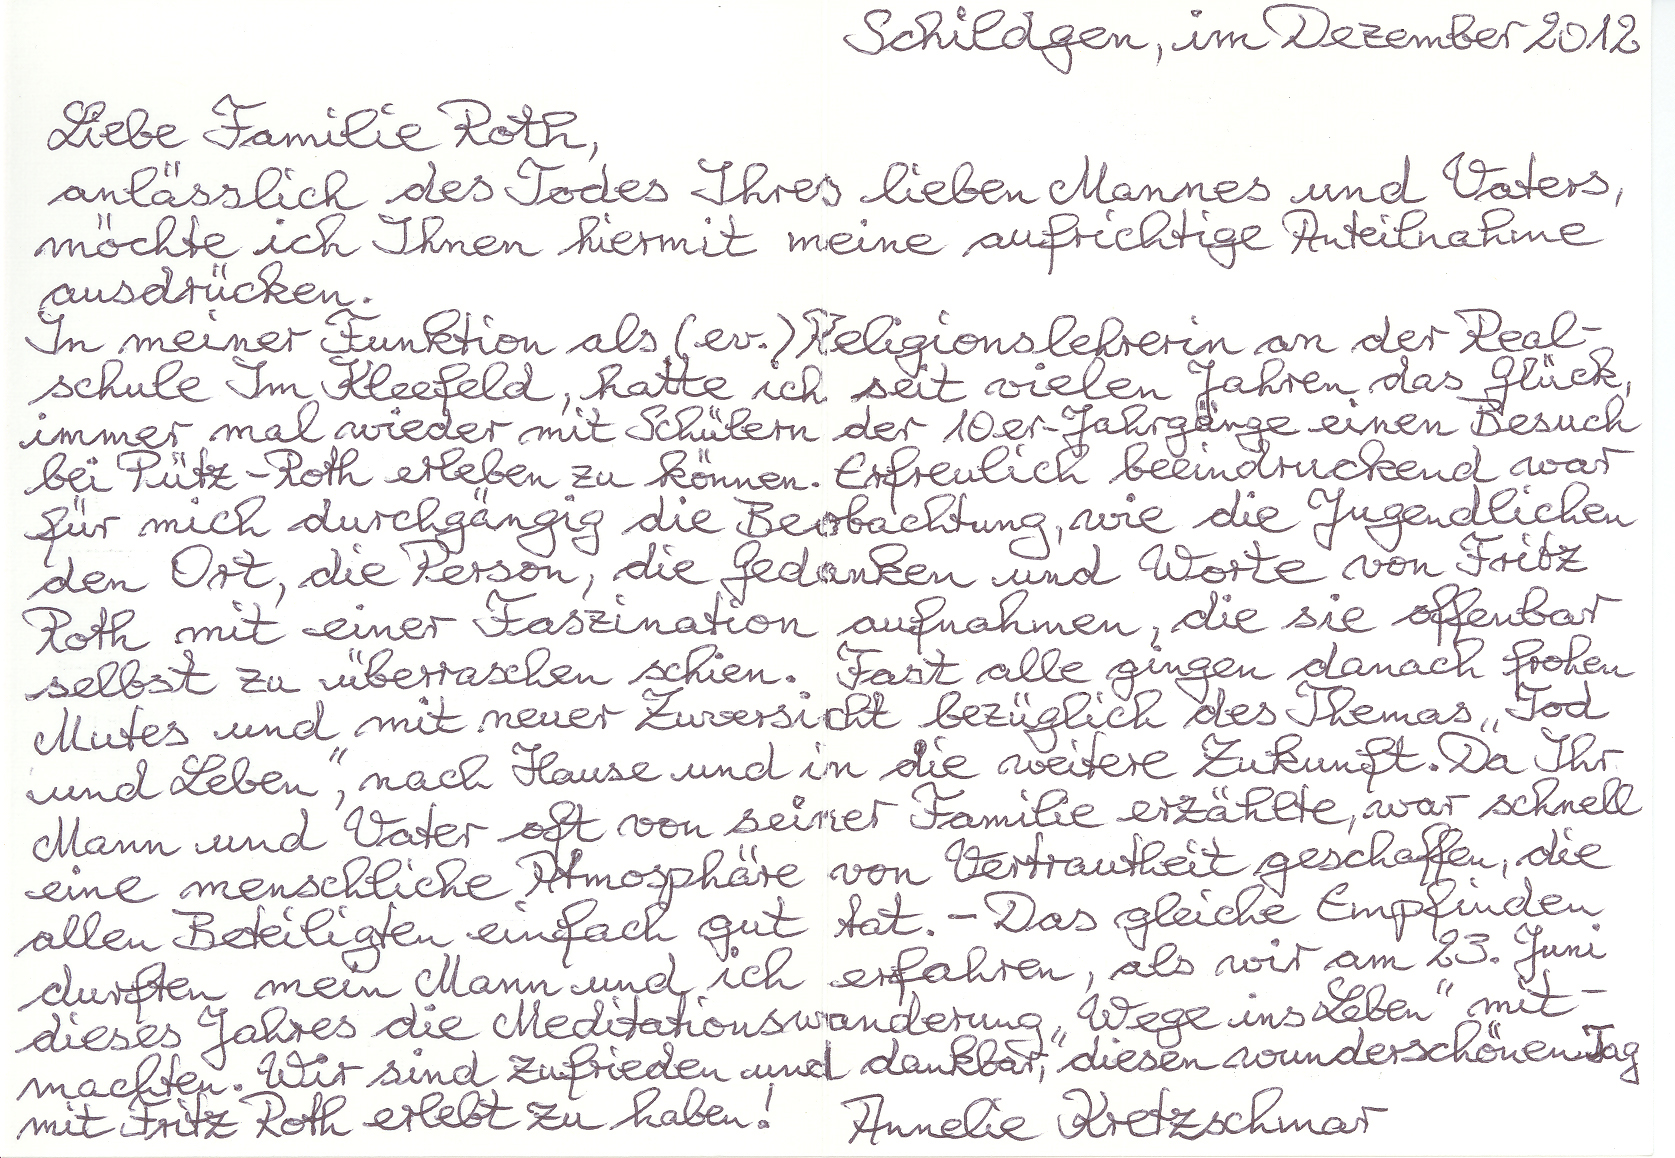 Schildgen, im Dezember 2012
Liebe Familie Roth,
anlässlich des Todes Ihres lieben Mannes und Vaters,
möchte ich Ihnen hiermit meine aufrichtige Anteilnahme
ausdrücken.
In meiner Funktion als (ev.) Religionslehrerin an der Real-
schule Im Kleefeld, hatte ich seit vielen Jahren das Glück,
immer mal wieder mit Schülern der 10er-Jahrgänge einen Besuch
bei Pütz-Roth erleben zu können. Erfreulich beeindruckend war
für mich durchgängig die Beobachtung, wie die Jugendlichen
den Ort, die Person, die Gedanken und Worte von Fritz
Roth mit einer Faszination aufnahmen, die sie offenbar
selbst zu überraschen schien. Fast alle gingen danach frohen
Mutes und mit neuer Zuversicht bezüglich des Themas „Tod
und Leben“, nach Hause und in die weitere Zukunft. Da Ihr
Mann und Vater oft von seiner Familie erzählte, war schnell
eine menschliche Atmosphäre von Vertrautheit geschaffen, die
allen Beteiligten einfach gut tat. – Das gleiche Empfinden
durften mein Mann und ich erfahren, als wir am 23. Juni
dieses Jahres die Meditationswanderung „Wege ins Leben“ mit-
machten. Wir sind zufrieden und dankbar, diesen wunderschönen Tag
mit Fritz Roth erlebt zu haben! Annelie Kretzschmar